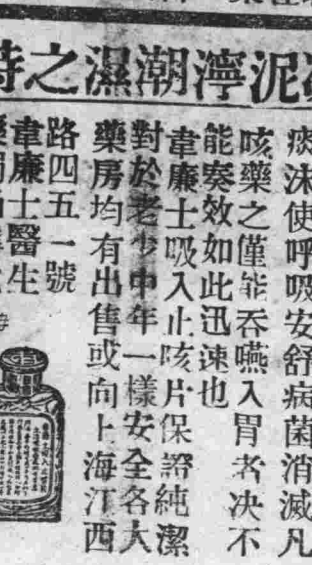 泥濘潮濕之時
痰沫使呼吸安舒病菌消滅凡
咳藥之僅能吞嚥入胃者决不
能奏效如此迅速也
韋廉士吸入止咳片保證純潔
對於老少中年一樣安全各大
藥房均有出售或向上海江西
路四五一號
韋廉士醫生
每